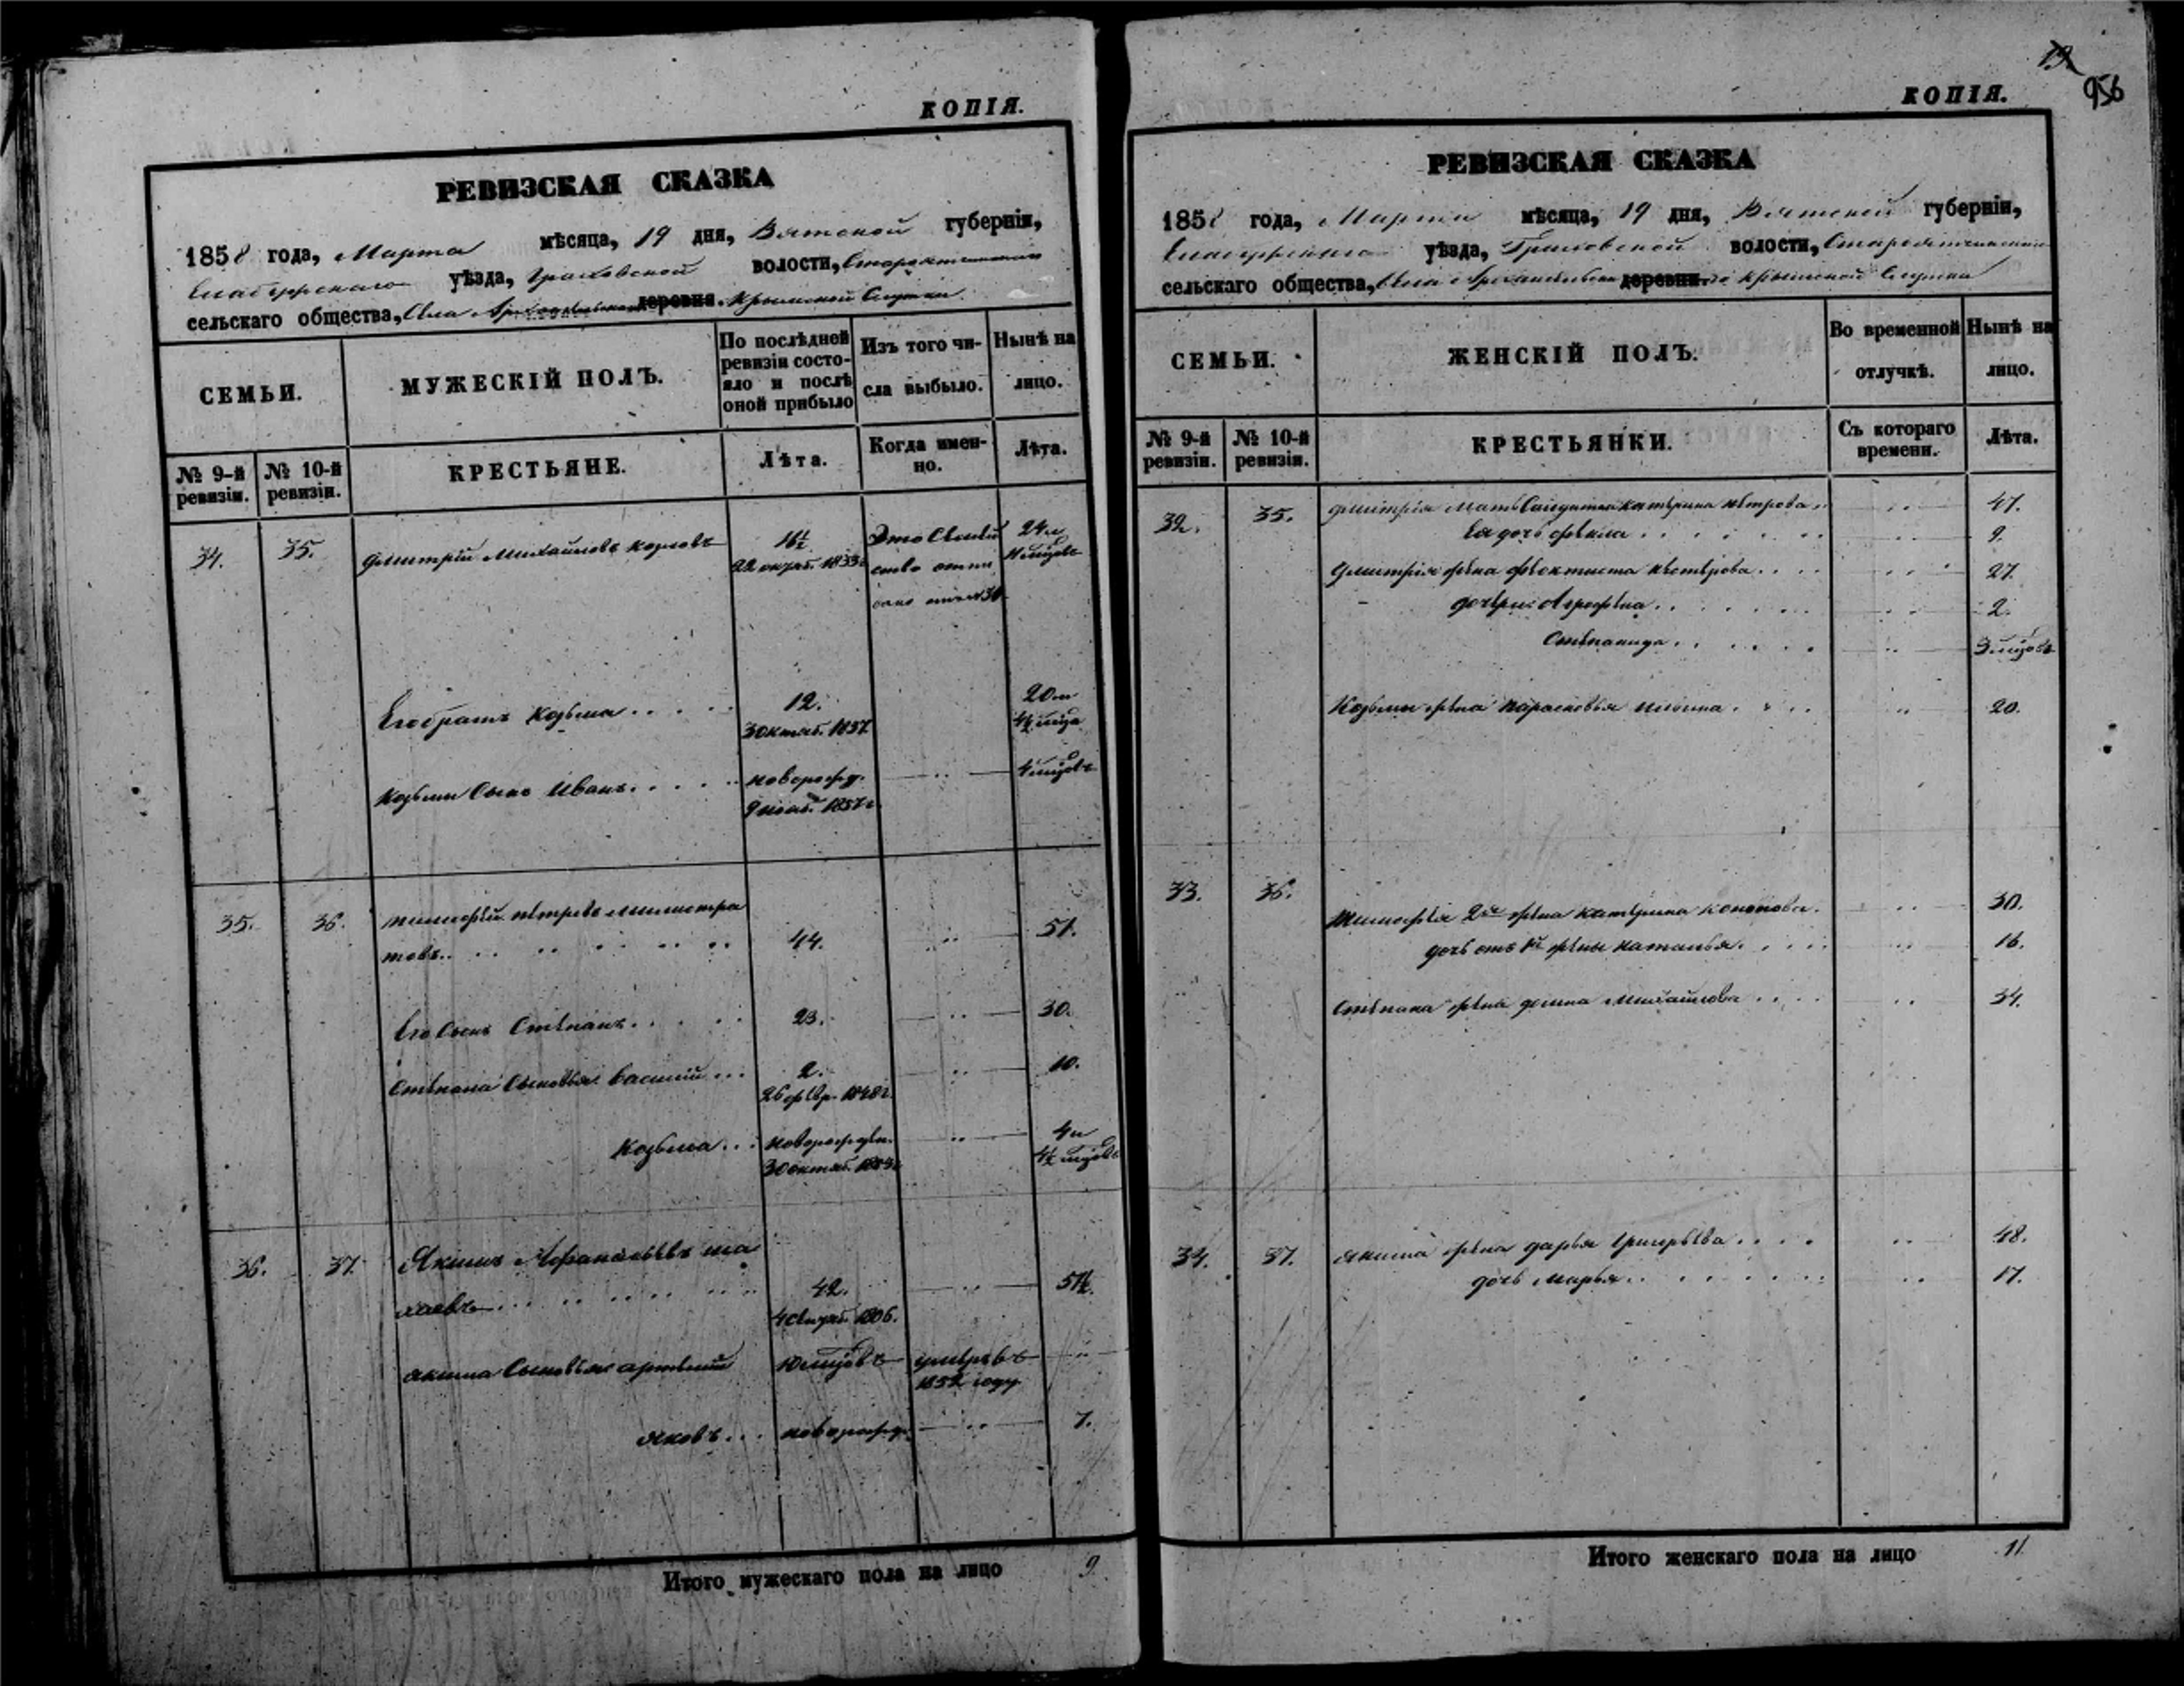 КОПІЯ.
РЕВИЗСКАЯ СКАЗКА
1858 года, Марта мѣсяца, 19 дня, Вятской губерніи,
Елабужскаго уѣзда, Граховской волости,
сельскаго общества, Села деревни. Крымской Слудки
СЕМЬИ.
МУЖЕСКІЙ ПОЛЪ.
По послѣдней ревизіи состояло и послѣ оной прибыло
Изъ того числа выбыло.
Нынѣ на лицо.
№ 9-й ревизіи.
№ 10-й ревизіи.
КРЕСТЬЯНЕ.
Лѣта.
Когда именно.
Лѣта.
34. 35. Дмитрій Михайловъ Козловъ 16½ Это Семей 24 и
22 октяб. 1833 ство отпи 4 мѣсцовъ
сано
Его братъ Козьма 12. 20 и
30 ктяб. 1837 4½ мѣсца
Козьмы Сынъ Иванъ новорожд. 4 мѣсцовъ
9 нояб. 1857 г.
35. 36. Тимофей Петровъ Милистра
товъ 44. 51.
Его Сынъ Степанъ 23. 30.
Степана Сыновья: Василий 2. 10.
26 февр. 1848 г.
Козьма новорожден. 4 и
30 октяб. 4½ мѣсцовъ
36. 37. Якимъ Афанасьевъ ма
хаевъ 42. 51½.
4 Сентяб. 1806.
Якима Сыновья: Артемий 10 мѣсцовъ умеръ въ
1852 году
Яковъ новорожд. 7.
Итого мужескаго пола на лицо 9
13
956
КОПІЯ.
РЕВИЗСКАЯ СКАЗКА
1858 года, Марта мѣсяца, 19 дня, Вятской губерніи,
Елабужскаго уѣзда, Граховской волости,
сельскаго общества, Села Архангельскаго деревни. Крымской Слудки
СЕМЬИ.
ЖЕНСКІЙ ПОЛЪ.
Во временной отлучкѣ.
Нынѣ на лицо.
№ 9-й ревизіи.
№ 10-й ревизіи.
КРЕСТЬЯНКИ.
Съ котораго времени.
Лѣта.
32. 35. Дмитрія Мать Солдатка Катерина Петрова 47.
Ея дочь Фекла 9.
Дмитрія жена Феоктиста Нестерова 27.
дочери: Аграфена 2.
Степанида 3 мѣсцовъ
Козьмы жена Парасковья Ильина 20.
33. 36. Тимофея 2я жена Катерина Кононова 30.
дочь отъ 1й жены Наталья 16.
Степана жена Домна Михайлова 34.
34. 37. Якима жена Дарья Григорьева 48.
дочь Марья 17.
Итого женскаго пола на лицо 11